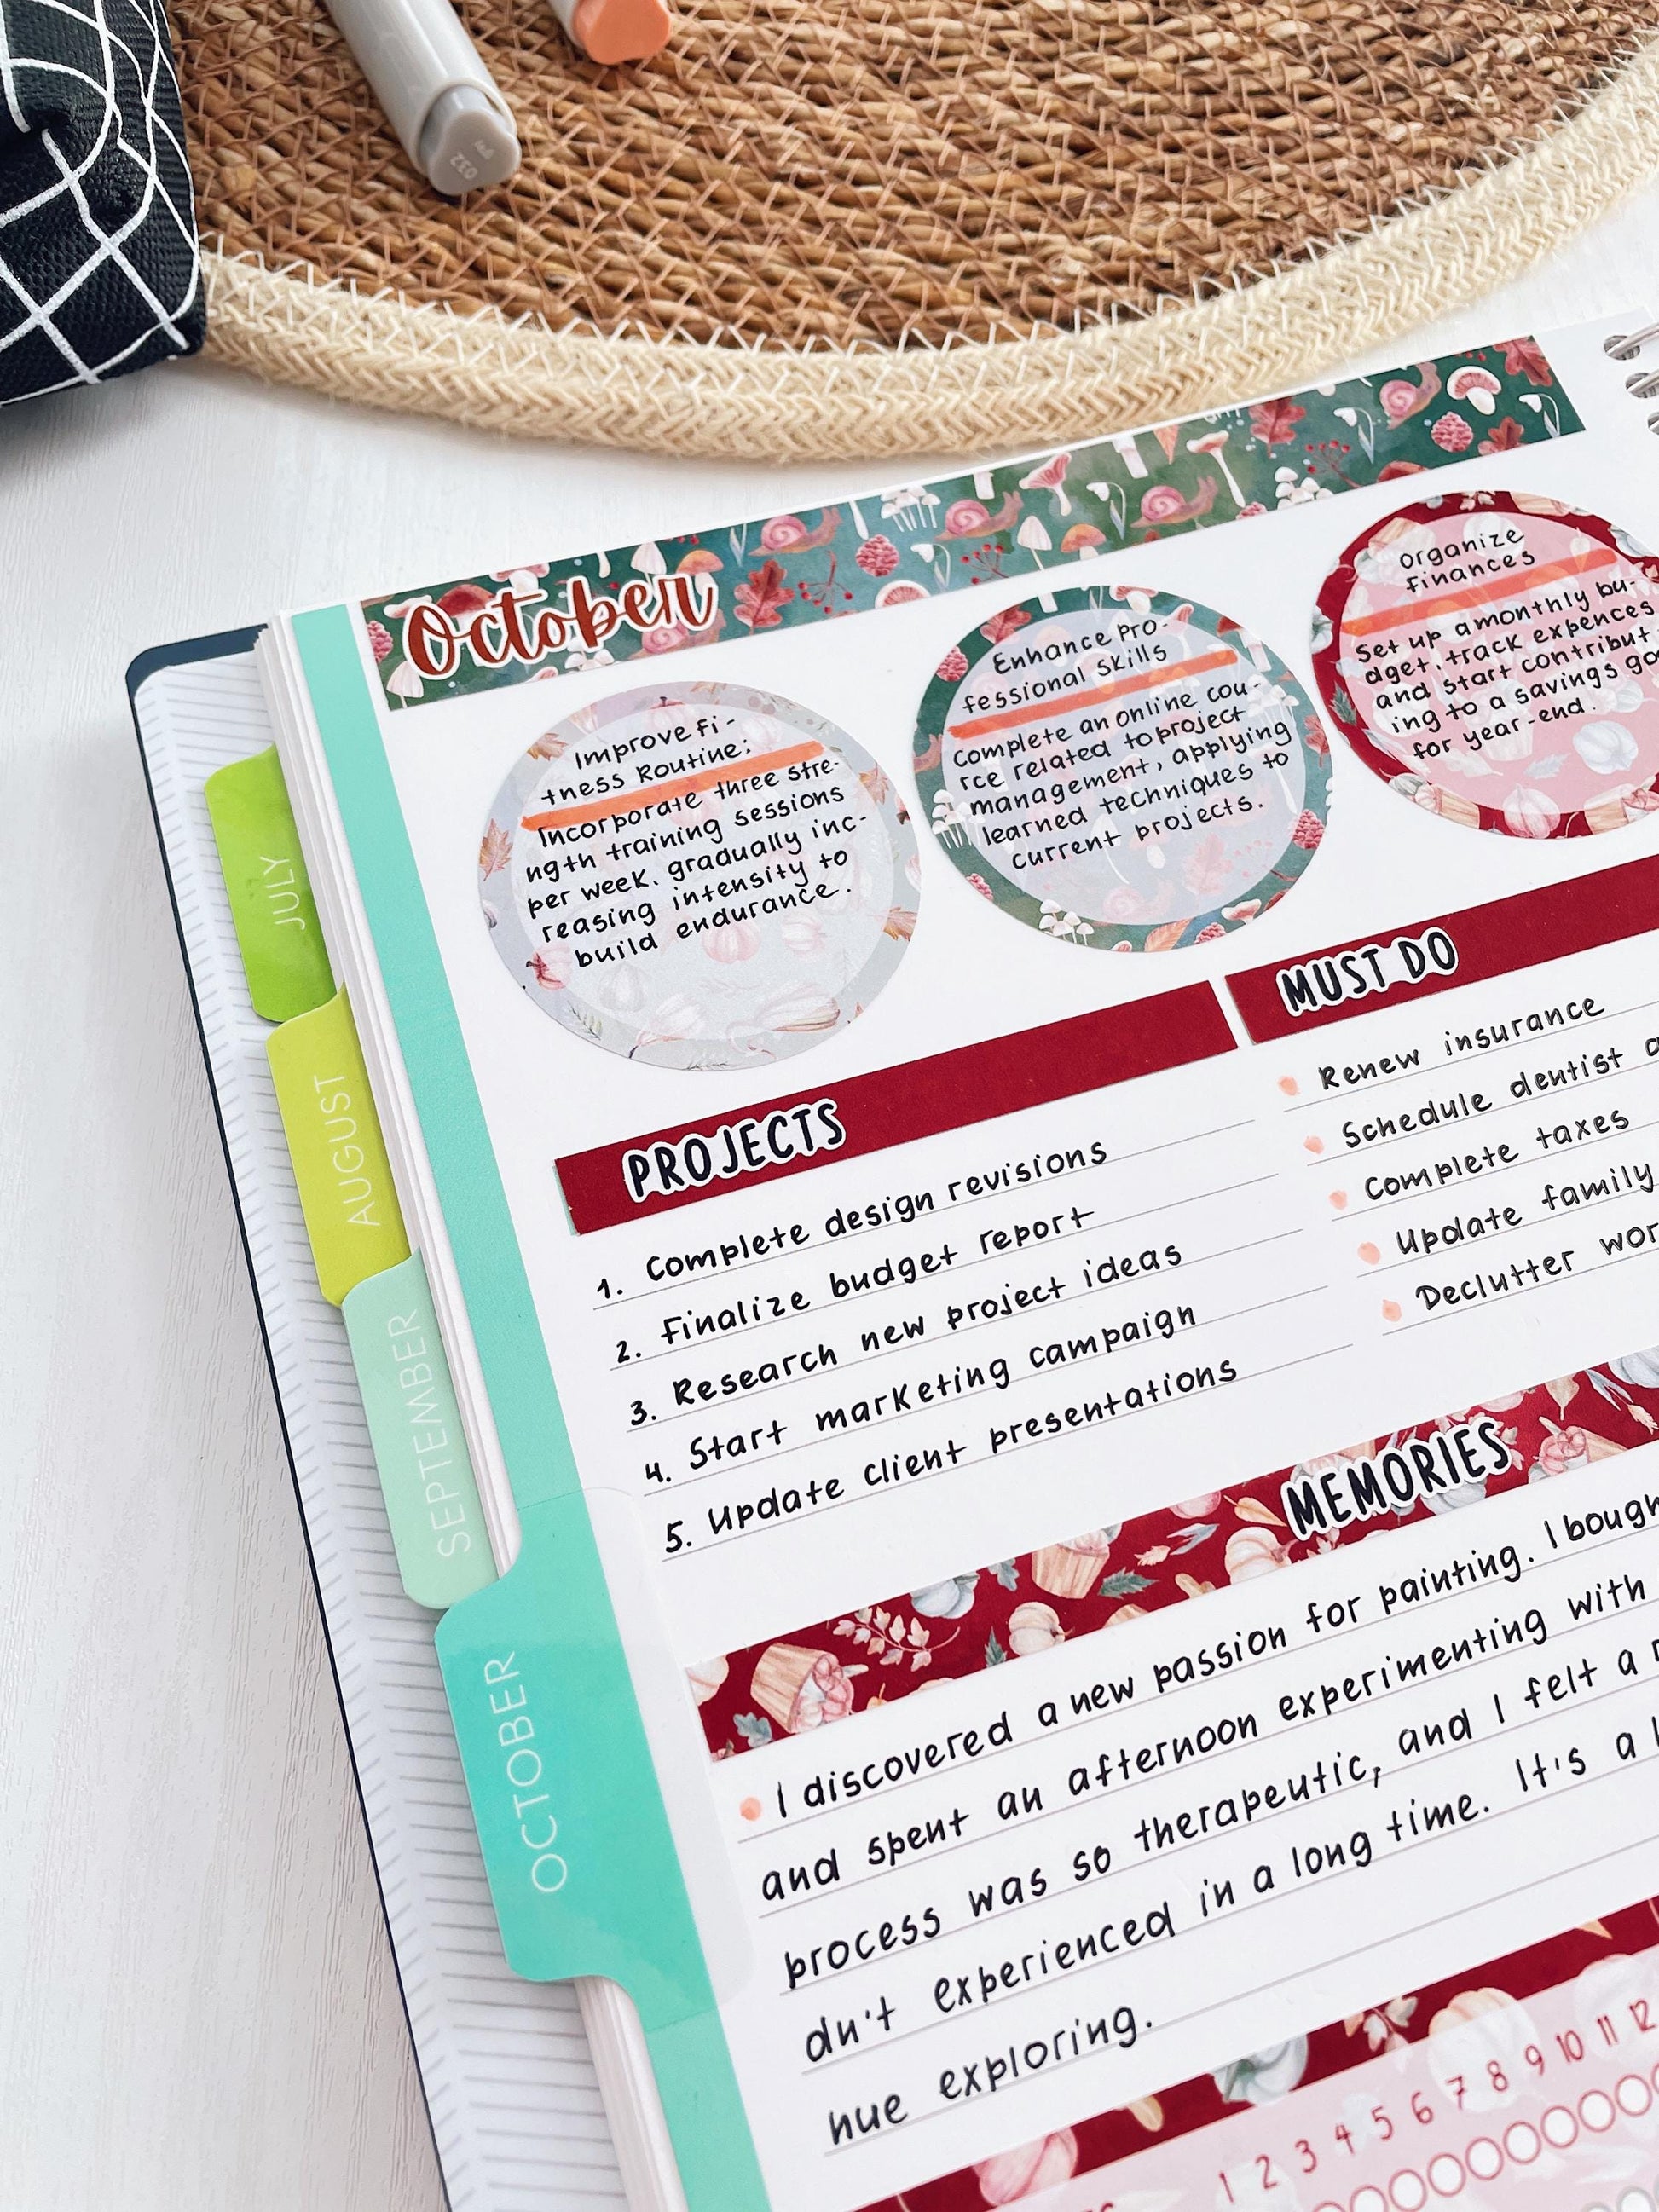 032
October
Improve Fi-
tness Routine:
Incorporate three stre-
ngth training sessions
per week, gradually inc-
reasing intensity to
build endurance.
Enhance Pro-
fessional Skills
Complete an online cou-
rce related to project
management, applying
learned techniques to
current projects.
Organize
Finances
Set up a monthly bu-
dget, track expences
and start contribut
ing to a savings go
for year-end.
JULY
AUGUST
SEPTEMBER
OCTOBER
PROJECTS
1. Complete design revisions
2. Finalize budget report
3. Research new project ideas
4. Start marketing campaign
5. Update client presentations
MUST DO
Renew insurance
Schedule dentist a
Complete taxes
Update family
Declutter wor
MEMORIES
I discovered a new passion for painting. I bough
and spent an afternoon experimenting with
process was so therapeutic, and I felt a
dn't experienced in a long time. It's a
nue exploring.
1 2 3 4 5 6 7 8 9 10 11 12